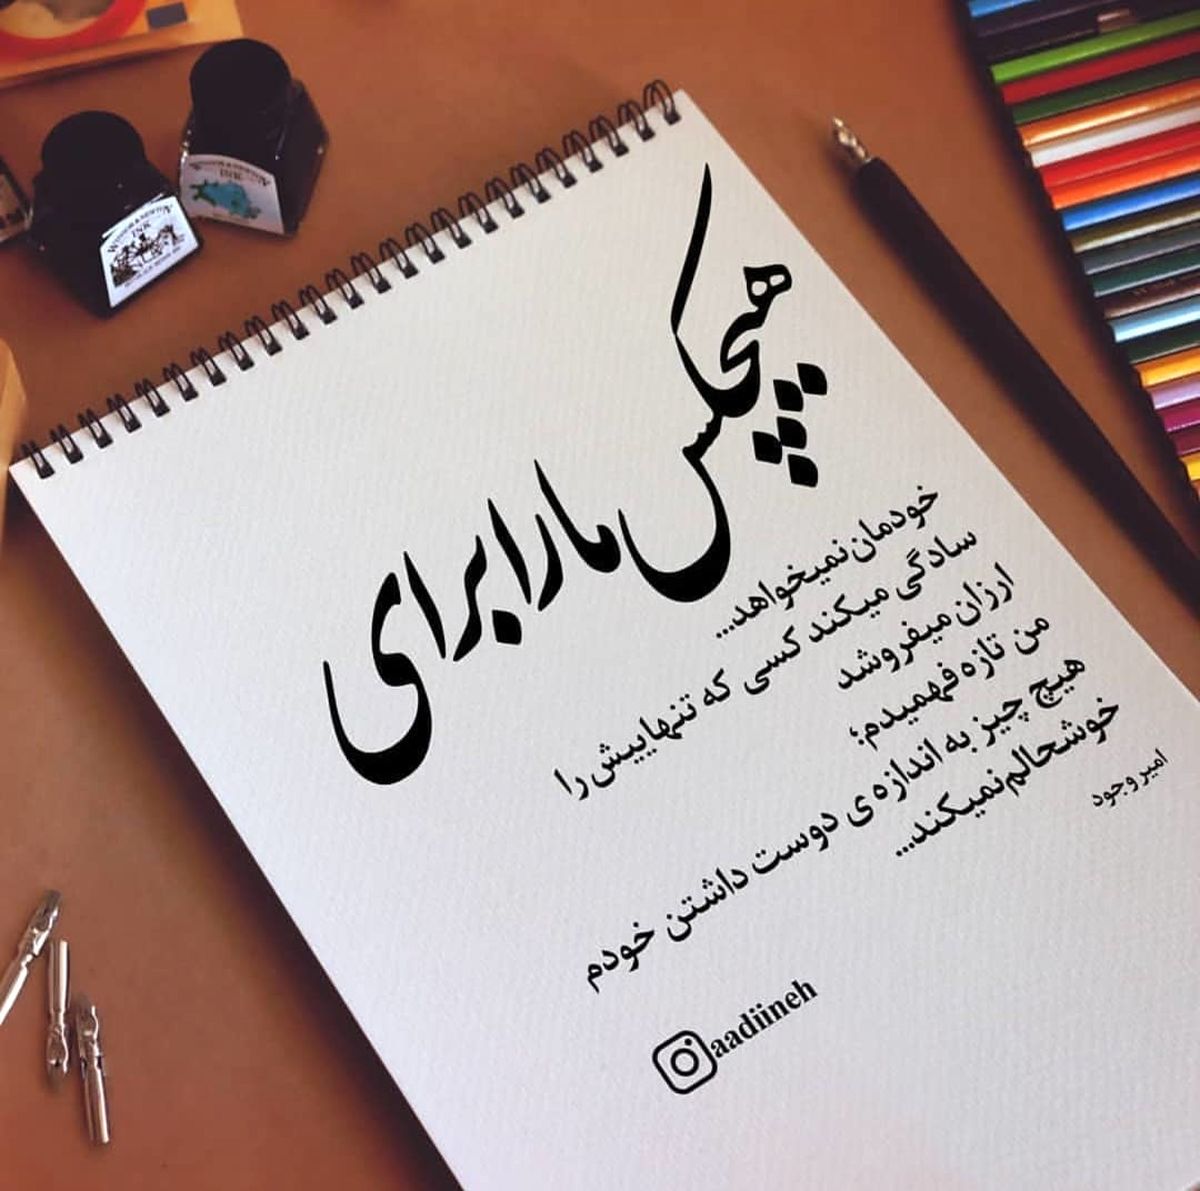 هیچکس ما را برای
خودمان نمیخواهد...
سادگی میکند کسی که تنهاییش را
ارزان میفروشد
من تازه فهمیدم؛
هیچ چیز به اندازه ی دوست داشتن خودم
خوشحالم نمیکند...
امیر وجود
aadiineh
WINSOR & NEWTON
INK
WINSOR & NEWTON
INK